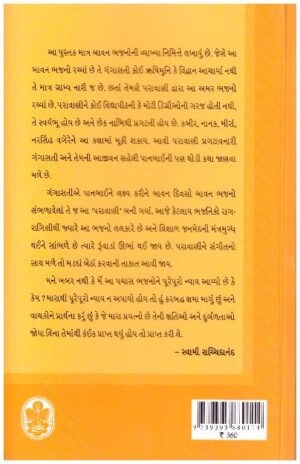 આ પુસ્તક માત્ર બાવન ભજનોની વ્યાખ્યા નિમિત્તે લખાયું છે. જેણે આ
બાવન ભજનો રચ્યાં છે તે ગંગાસતી કોઈ ઋષિમુનિ કે વિદ્વાન આચાર્યા નથી
તે માત્ર ગ્રામ્ય નારી જ છે. છતાં તેમણે પરાવાણી દ્વારા આ અમર ભજનો
રચ્યાં છે. પરાવાણીને કોઈ વિદ્યાપીઠની કે મોટી ડિગ્રીઓની ગરજ હોતી નથી,
તે સ્વયંભૂ હોય છે અને છેક નાભિથી પ્રગટતી હોય છે. કબીર, નાનક, મીરાં,
નરસિંહ વગેરેને આ કક્ષામાં મૂકી શકાય. આવી પરાવાણી પ્રગટાવનારી
ગંગાસતી અને તેમની આજીવન સહેલી પાનબાઈની પણ થોડી કથા જાણવા
મળે છે.
ગંગાસતીએ પાનબાઈને લક્ષ્ય કરીને બાવન દિવસો બાવન ભજનો
સંભળાવેલાં તે જ આ 'પરાવાણી' બની ગયાં. આજે કેટલાય ભજનિકો રાગ-
રાગિણીથી જ્યારે આ ભજનો લલકારે છે અને વિશાળ જનમેદની મંત્રમુગ્ધ
થઈને સાંભળે છે ત્યારે રૂંવાડાં ઊભાં થઈ જાય છે. પરાવાણીને સંગીતનો
સાથ મળે તો મડદાં બેઠાં કરવાની તાકાત આવી જાય.
મને ખબર નથી કે મેં આ પચાસ ભજનોને પૂરેપૂરો ન્યાય આપ્યો છે કે
કેમ? મારાથી પૂરેપૂરો ન્યાય ન અપાયો હોય તો હું કરબદ્ધ ક્ષમા માગું છું અને
વાચકોને પ્રાર્થના કરું છું કે જે મારા પ્રયત્નો છે તેની ક્ષતિઓ અને દુર્બળતાઓ
જોયા વિના તેમાંથી કંઈક પ્રાપ્ત થયું હોય તો પ્રાપ્ત કરી લે.
– સ્વામી સચ્ચિદાનંદ
9 789395 880114
₹ 360